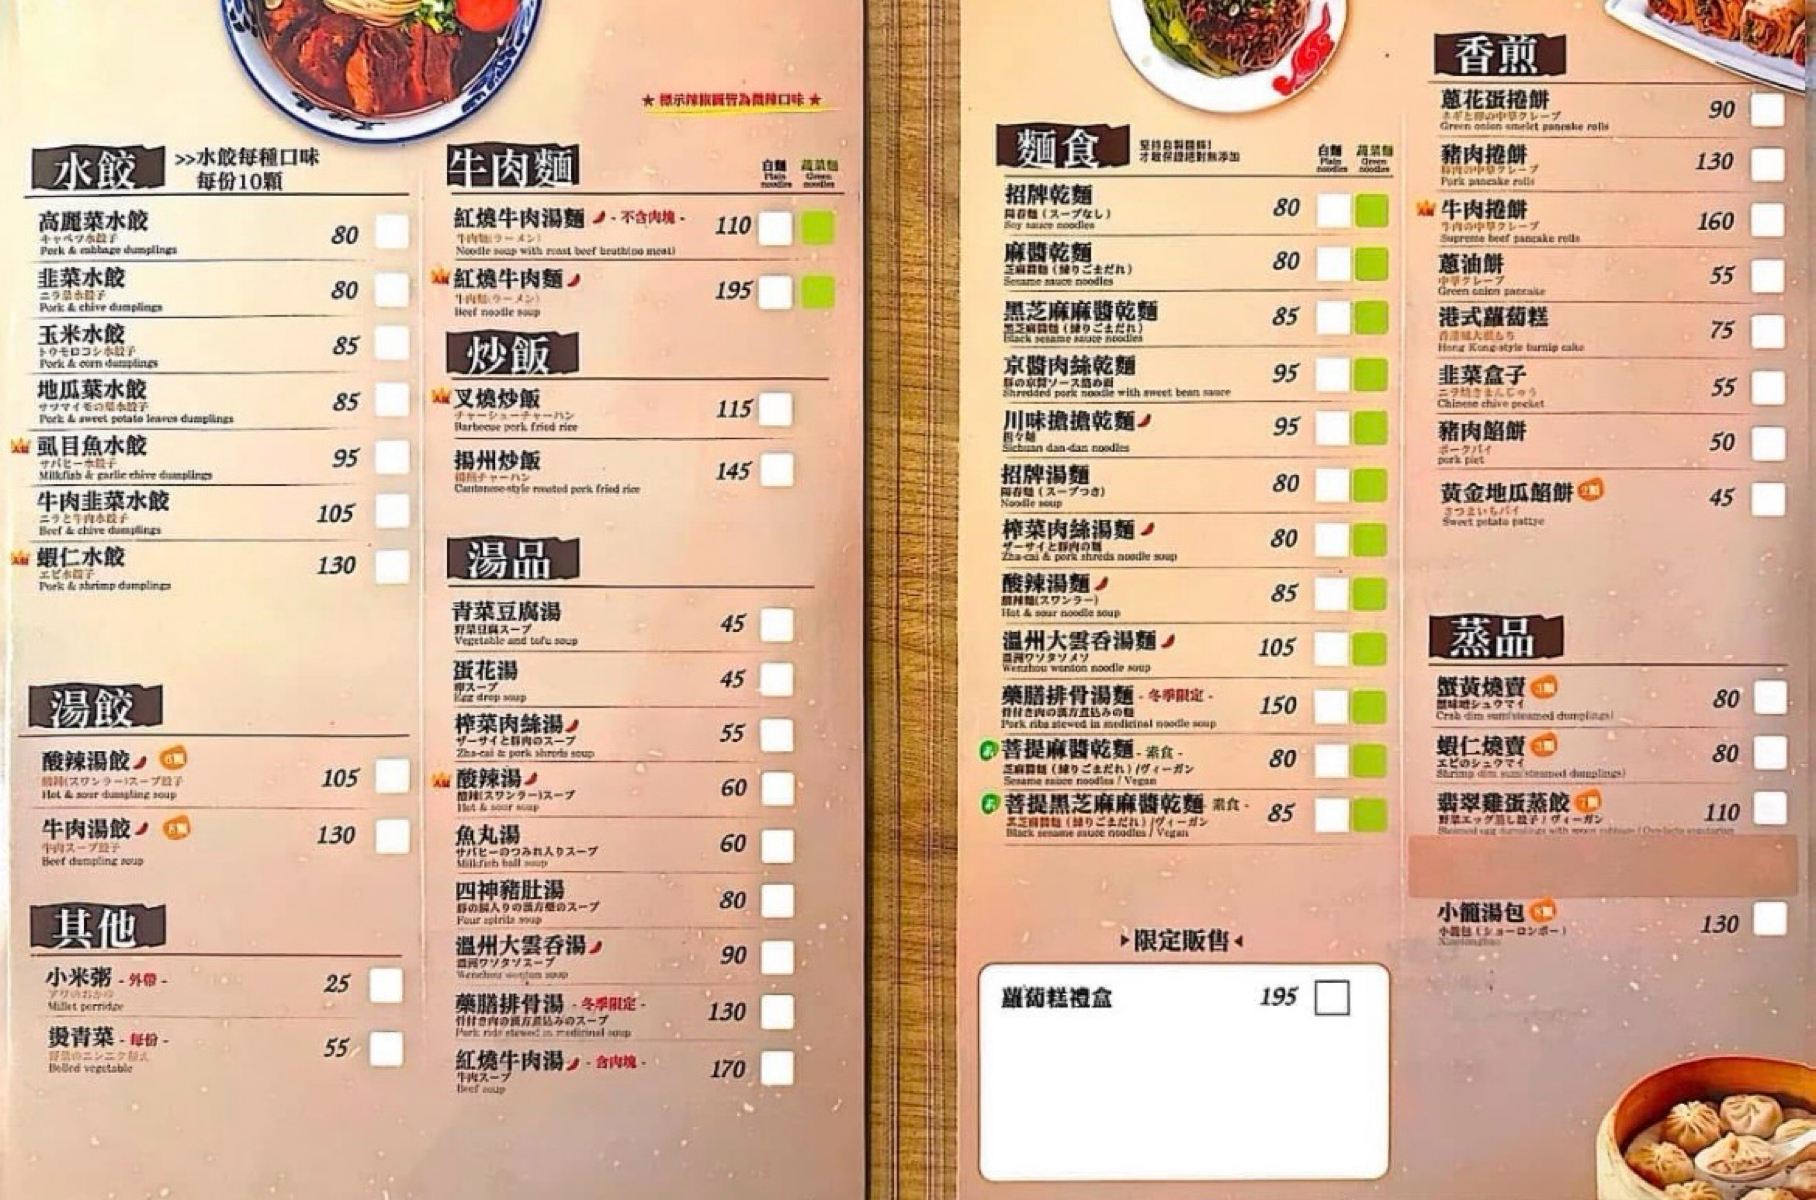 ★ 標示辣椒圖皆為微辣口味 ★
水餃
>>水餃每種口味
每份10顆
高麗菜水餃 80
キャベツ水餃子
Pork & cabbage dumplings
韭菜水餃 80
ニラ菜水餃子
Pork & chive dumplings
玉米水餃 85
トウモロコシ水餃子
Pork & corn dumplings
地瓜葉水餃 85
サツマイモの葉水餃子
Pork & sweet potato leaves dumplings
虱目魚水餃 95
サバヒー水餃子
Milkfish & garlic chive dumplings
牛肉韭菜水餃 105
ニラと牛肉水餃子
Beef & chive dumplings
蝦仁水餃 130
エビ水餃子
Pork & shrimp dumplings
湯餃
酸辣湯餃 105
酸辣(スワンラー)スープ餃子
Hot & sour dumpling soup
牛肉湯餃 8顆 130
牛肉スープ餃子
Beef dumpling soup
其他
小米粥 - 外帶 - 25
アワのおかゆ
Millet porridge
燙青菜 - 每份 - 55
Boiled vegetable
牛肉麵
白麵 蔬菜麵
Plain Green
noodles noodles
紅燒牛肉湯麵 - 不含肉塊 - 110
牛肉麵(ラーメン)
Noodle soup with roast beef broth(no meat)
紅燒牛肉麵 195
牛肉麵(ラーメン)
Beef noodle soup
炒飯
叉燒炒飯 115
チャーシューチャーハン
Barbecue pork fried rice
揚州炒飯 145
揚州チャーハン
Cantonese-style roasted pork fried rice
湯品
青菜豆腐湯 45
野菜豆腐スープ
Vegetable and tofu soup
蛋花湯 45
卵スープ
Egg drop soup
榨菜肉絲湯 55
ザーサイと豚肉のスープ
Zha-cai & pork shreds soup
酸辣湯 60
酸辣(スワンラー)スープ
Hot & sour soup
魚丸湯 60
サバヒーのつみれ入りスープ
Milkfish ball soup
四神豬肚湯 80
豚の腸入りの漢方薬のスープ
Four spirits soup
溫州大雲吞湯 90
溫州ワンタンスープ
Wenzhou wonton soup
藥膳排骨湯 - 冬季限定 - 130
骨付き肉の漢方煮込みのスープ
Pork ribs stewed in medicinal soup
紅燒牛肉湯 - 含肉塊 - 170
牛肉スープ
Beef soup
麵食
堅持自製麵條!
才敢保證絕對無添加
白麵 蔬菜麵
Plain Green
noodles noodles
招牌乾麵 80
陽春麵（スープなし）
Soy sauce noodles
麻醬乾麵 80
芝麻醬麵（練りごまだれ）
Sesame sauce noodles
黑芝麻麻醬乾麵 85
黑芝麻醬麵（練りごまだれ）
Black sesame sauce noodles
京醬肉絲乾麵 95
豚の京醤ソース絡め麵
Shredded pork noodle with sweet bean sauce
川味擔擔乾麵 95
担々麵
Sichuan dan-dan noodles
招牌湯麵 80
陽春麵（スープつき）
Noodle soup
榨菜肉絲湯麵 80
ザーサイと豚肉の麵
Zha-cai & pork shreds noodle soup
酸辣湯麵 85
酸辣麵(スワンラー)
Hot & sour noodle soup
溫州大雲吞湯麵 105
溫州ワンタンメン
Wenzhou wonton noodle soup
藥膳排骨湯麵 - 冬季限定 - 150
骨付き肉の漢方煮込みの麵
Pork ribs stewed in medicinal noodle soup
素 菩提麻醬乾麵 - 素食 - 80
芝麻醬麵（練りごまだれ）/ヴィーガン
Sesame sauce noodles / Vegan
素 菩提黑芝麻麻醬乾麵 - 素食 - 85
黑芝麻醬麵（練りごまだれ）/ヴィーガン
Black sesame sauce noodles / Vegan
▶限定販售◀
蘿蔔糕禮盒 195
香煎
蔥花蛋捲餅 90
ネギと卵の中華クレープ
Green onion omelet pancake rolls
豬肉捲餅 130
豚肉の中華クレープ
Pork pancake rolls
牛肉捲餅 160
牛肉の中華クレープ
Supreme beef pancake rolls
蔥油餅 55
中華クレープ
Green onion pancake
港式蘿蔔糕 75
香港風大根もち
Hong Kong-style turnip cake
韭菜盒子 55
ニラ焼きまんじゅう
Chinese chive pocket
豬肉餡餅 50
ポークパイ
pork piet
黃金地瓜餡餅 45
さつまいもパイ
Sweet potato pattye
蒸品
蟹黃燒賣 80
蟹味噌シュウマイ
Crab dim sum(steamed dumplings)
蝦仁燒賣 80
エビのシュウマイ
Shrimp dim sum(steamed dumplings)
翡翠雞蛋蒸餃 110
野菜エッグ蒸し餃子 / ヴィーガン
小籠湯包 8顆 130
小籠包（ショーロンポー）
Xiaolongbao